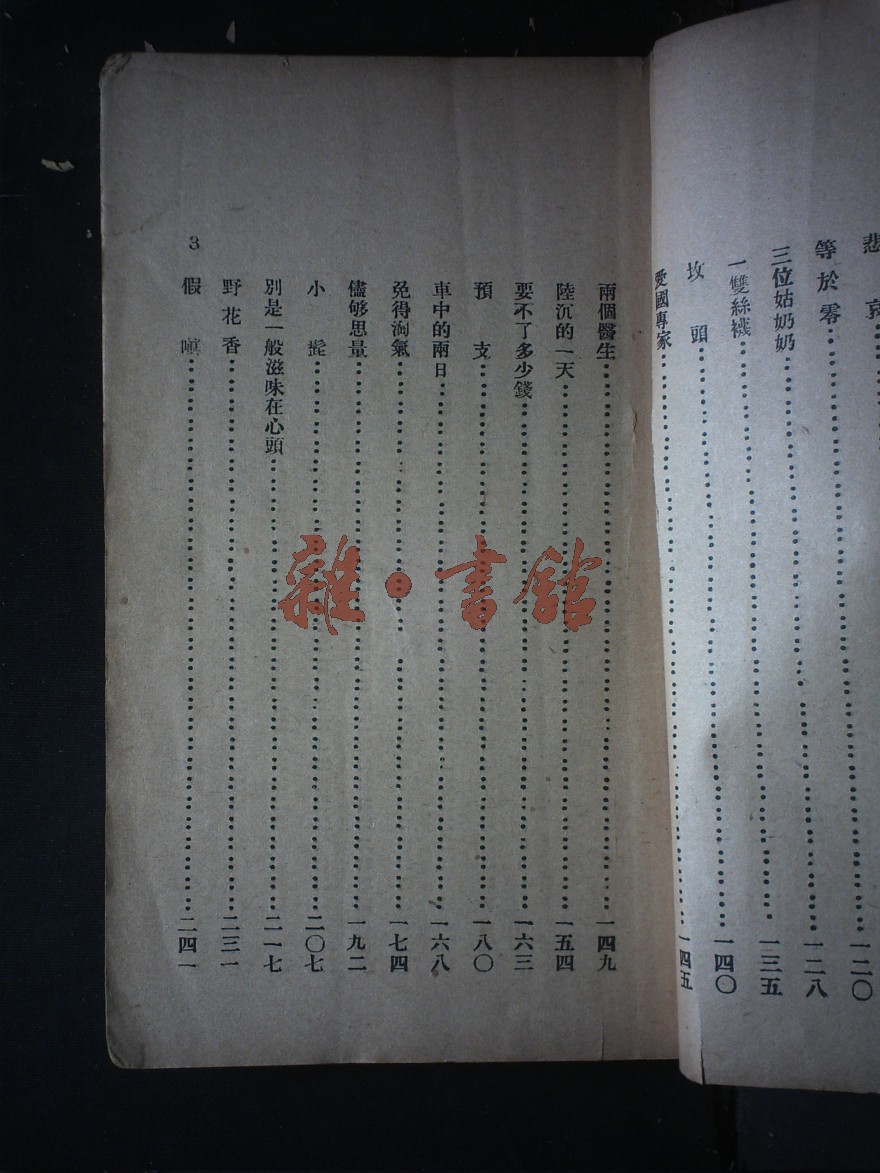 悲哀
等於零 一二〇
三位姑奶奶 一二八
一雙絲襪 一三五
坟頭 一四〇
愛國專家 一四五
兩個醫生 一四九
陸沉的一天 一五四
要不了多少錢 一六三
預支 一八〇
車中的兩日 一六八
免得淘氣 一七四
儘够思量 一九二
小髭 二〇七
別是一般滋味在心頭 二一七
野花香 二三一
假嗔 二四一
3
雜·書館